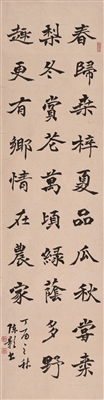 春歸桑梓夏品瓜秋嘗棗
梨冬賞花萬頃綠蔭多野
趣更有鄉情在農家
丁酉之秋